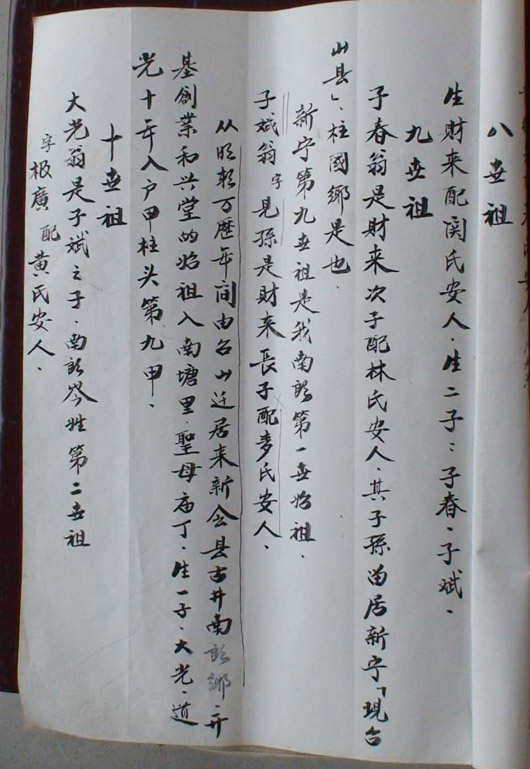 八世祖
生财来配関氏安人．生二子：子春．子斌．
九世祖
子春翁是财来次子配林氏安人．其子孫留居新宁「現台
山县」．柱國鄉是也．
新宁第九世祖是我南 第一世始祖．
子斌翁字見孫是财来長子配麦氏安人．
从明朝万歷年间由台山迁居来新会县古井南 鄉开
基創業和兴堂的始祖入南塘里．聖母庙丁．生一子．大光．道
光十年入户甲柱头第九甲．
十世祖
大光翁是子斌之子．南 岑姓第二世祖
字极廣配黄氏安人．